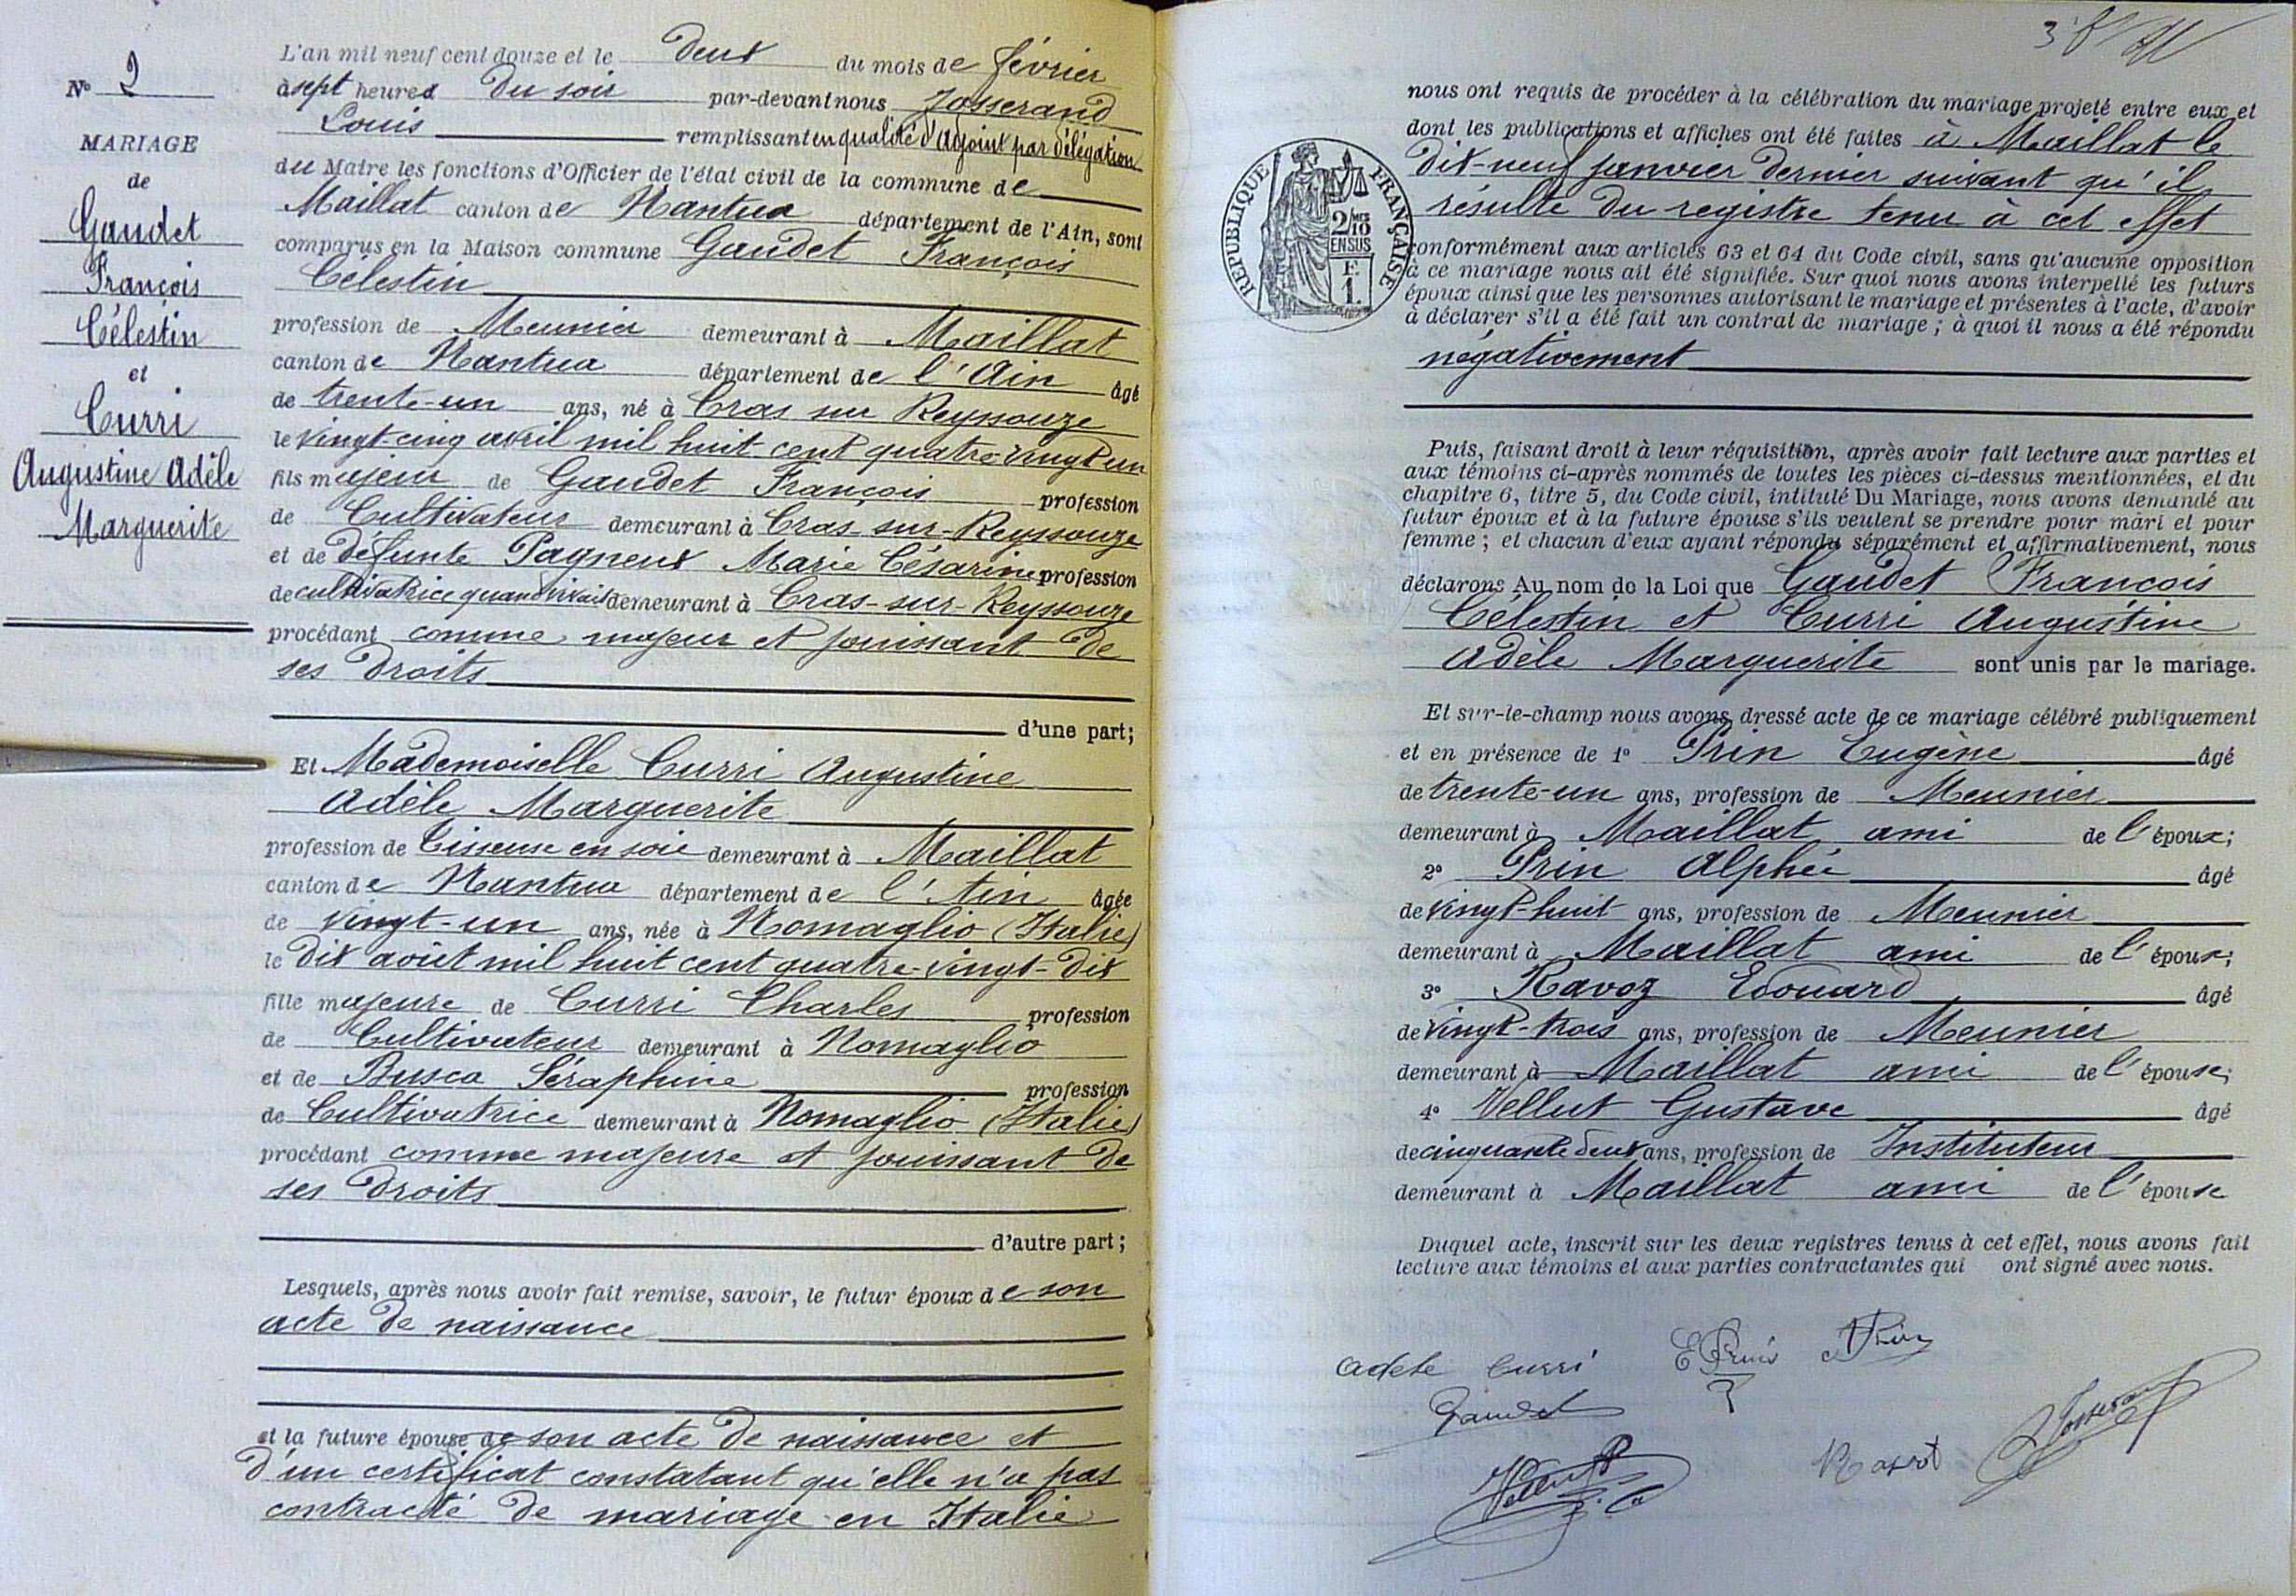 N° 2
MARIAGE
de
Gaudet
François
Célestin
et
Curri
Augustine Adèle
Marguerite
L'an mil neuf cent douze et le deux du mois de février
à sept heures du soir par-devant nous Josserand
Louis remplissant en qualité d'adjoint par délégation
du Maire les fonctions d'Officier de l'état civil de la commune de
Maillat canton de Nantua département de l'Ain, sont
comparus en la Maison commune Gaudet François
Célestin
profession de Meunier demeurant à Maillat
canton de Nantua département de l'Ain âgé
de trente-un ans, né à Cras sur Reyssouze
le vingt cinq avril mil huit cent quatre vingt un
fils majeur de Gaudet François profession
de Cultivateur demeurant à Cras-sur-Reyssouze
et de défunte Pagneux Marie Césarine profession
de cultivatrice quand vivait demeurant à Cras-sur-Reyssouze
procédant comme majeur et jouissant de
ses droits
d'une part;
Et Mademoiselle Curri Augustine
Adèle Marguerite
profession de Tisseuse en soie demeurant à Maillat
canton de Nantua département de l'Ain âgée
de vingt-un ans, née à Nomaglio (Italie)
le dix août mil huit cent quatre-vingt-dix
fille majeure de Curri Charles profession
de Cultivateur demeurant à Nomaglio
et de Busca Séraphine profession
de Cultivatrice demeurant à Nomaglio (Italie)
procédant comme majeure et jouissant de
ses droits
d'autre part;
Lesquels, après nous avoir fait remise, savoir, le futur époux de son
acte de naissance
et la future épouse de son acte de naissance et
d'un certificat constatant qu'elle n'a pas
contracté de mariage en Italie
nous ont requis de procéder à la célébration du mariage projeté entre eux et
dont les publications et affiches ont été faites à Maillat le
dix-neuf janvier dernier suivant qu'il
résulte du registre tenu à cet effet
REPUBLIQUE FRANÇAISE
2/10
EN SUS
F.
1.
conformément aux articles 63 et 64 du Code civil, sans qu'aucune opposition
à ce mariage nous ait été signifiée. Sur quoi nous avons interpellé les futurs
époux ainsi que les personnes autorisant le mariage et présentes à l'acte, d'avoir
à déclarer s'il a été fait un contrat de mariage; à quoi il nous a été répondu
négativement
Puis, faisant droit à leur réquisition, après avoir fait lecture aux parties et
aux témoins ci-après nommés de toutes les pièces ci-dessus mentionnées, et du
chapitre 6, titre 5, du Code civil, intitulé Du Mariage, nous avons demandé au
futur époux et à la future épouse s'ils veulent se prendre pour mari et pour
femme; et chacun d'eux ayant répondu séparément et affirmativement, nous
déclarons Au nom de la Loi que Gaudet François
Célestin et Curri Augustine
Adèle Marguerite sont unis par le mariage.
Et sur-le-champ nous avons dressé acte de ce mariage célébré publiquement
et en présence de 1° Prin Eugène âgé
de trente-un ans, profession de Meunier
demeurant à Maillat ami de l'époux;
2° Prin Alphée âgé
de vingt-huit ans, profession de Meunier
demeurant à Maillat ami de l'époux;
3° Ravoz Edouard âgé
de vingt-trois ans, profession de Meunier
demeurant à Maillat ami de l'épouse;
4° Vellut Gustave âgé
de cinquante deux ans, profession de Instituteur
demeurant à Maillat ami de l'épouse
Duquel acte, inscrit sur les deux registres tenus à cet effet, nous avons fait
lecture aux témoins et aux parties contractantes qui ont signé avec nous.
Adèle Curri E Prin A Prin
Gaudet Josserand
Vellut